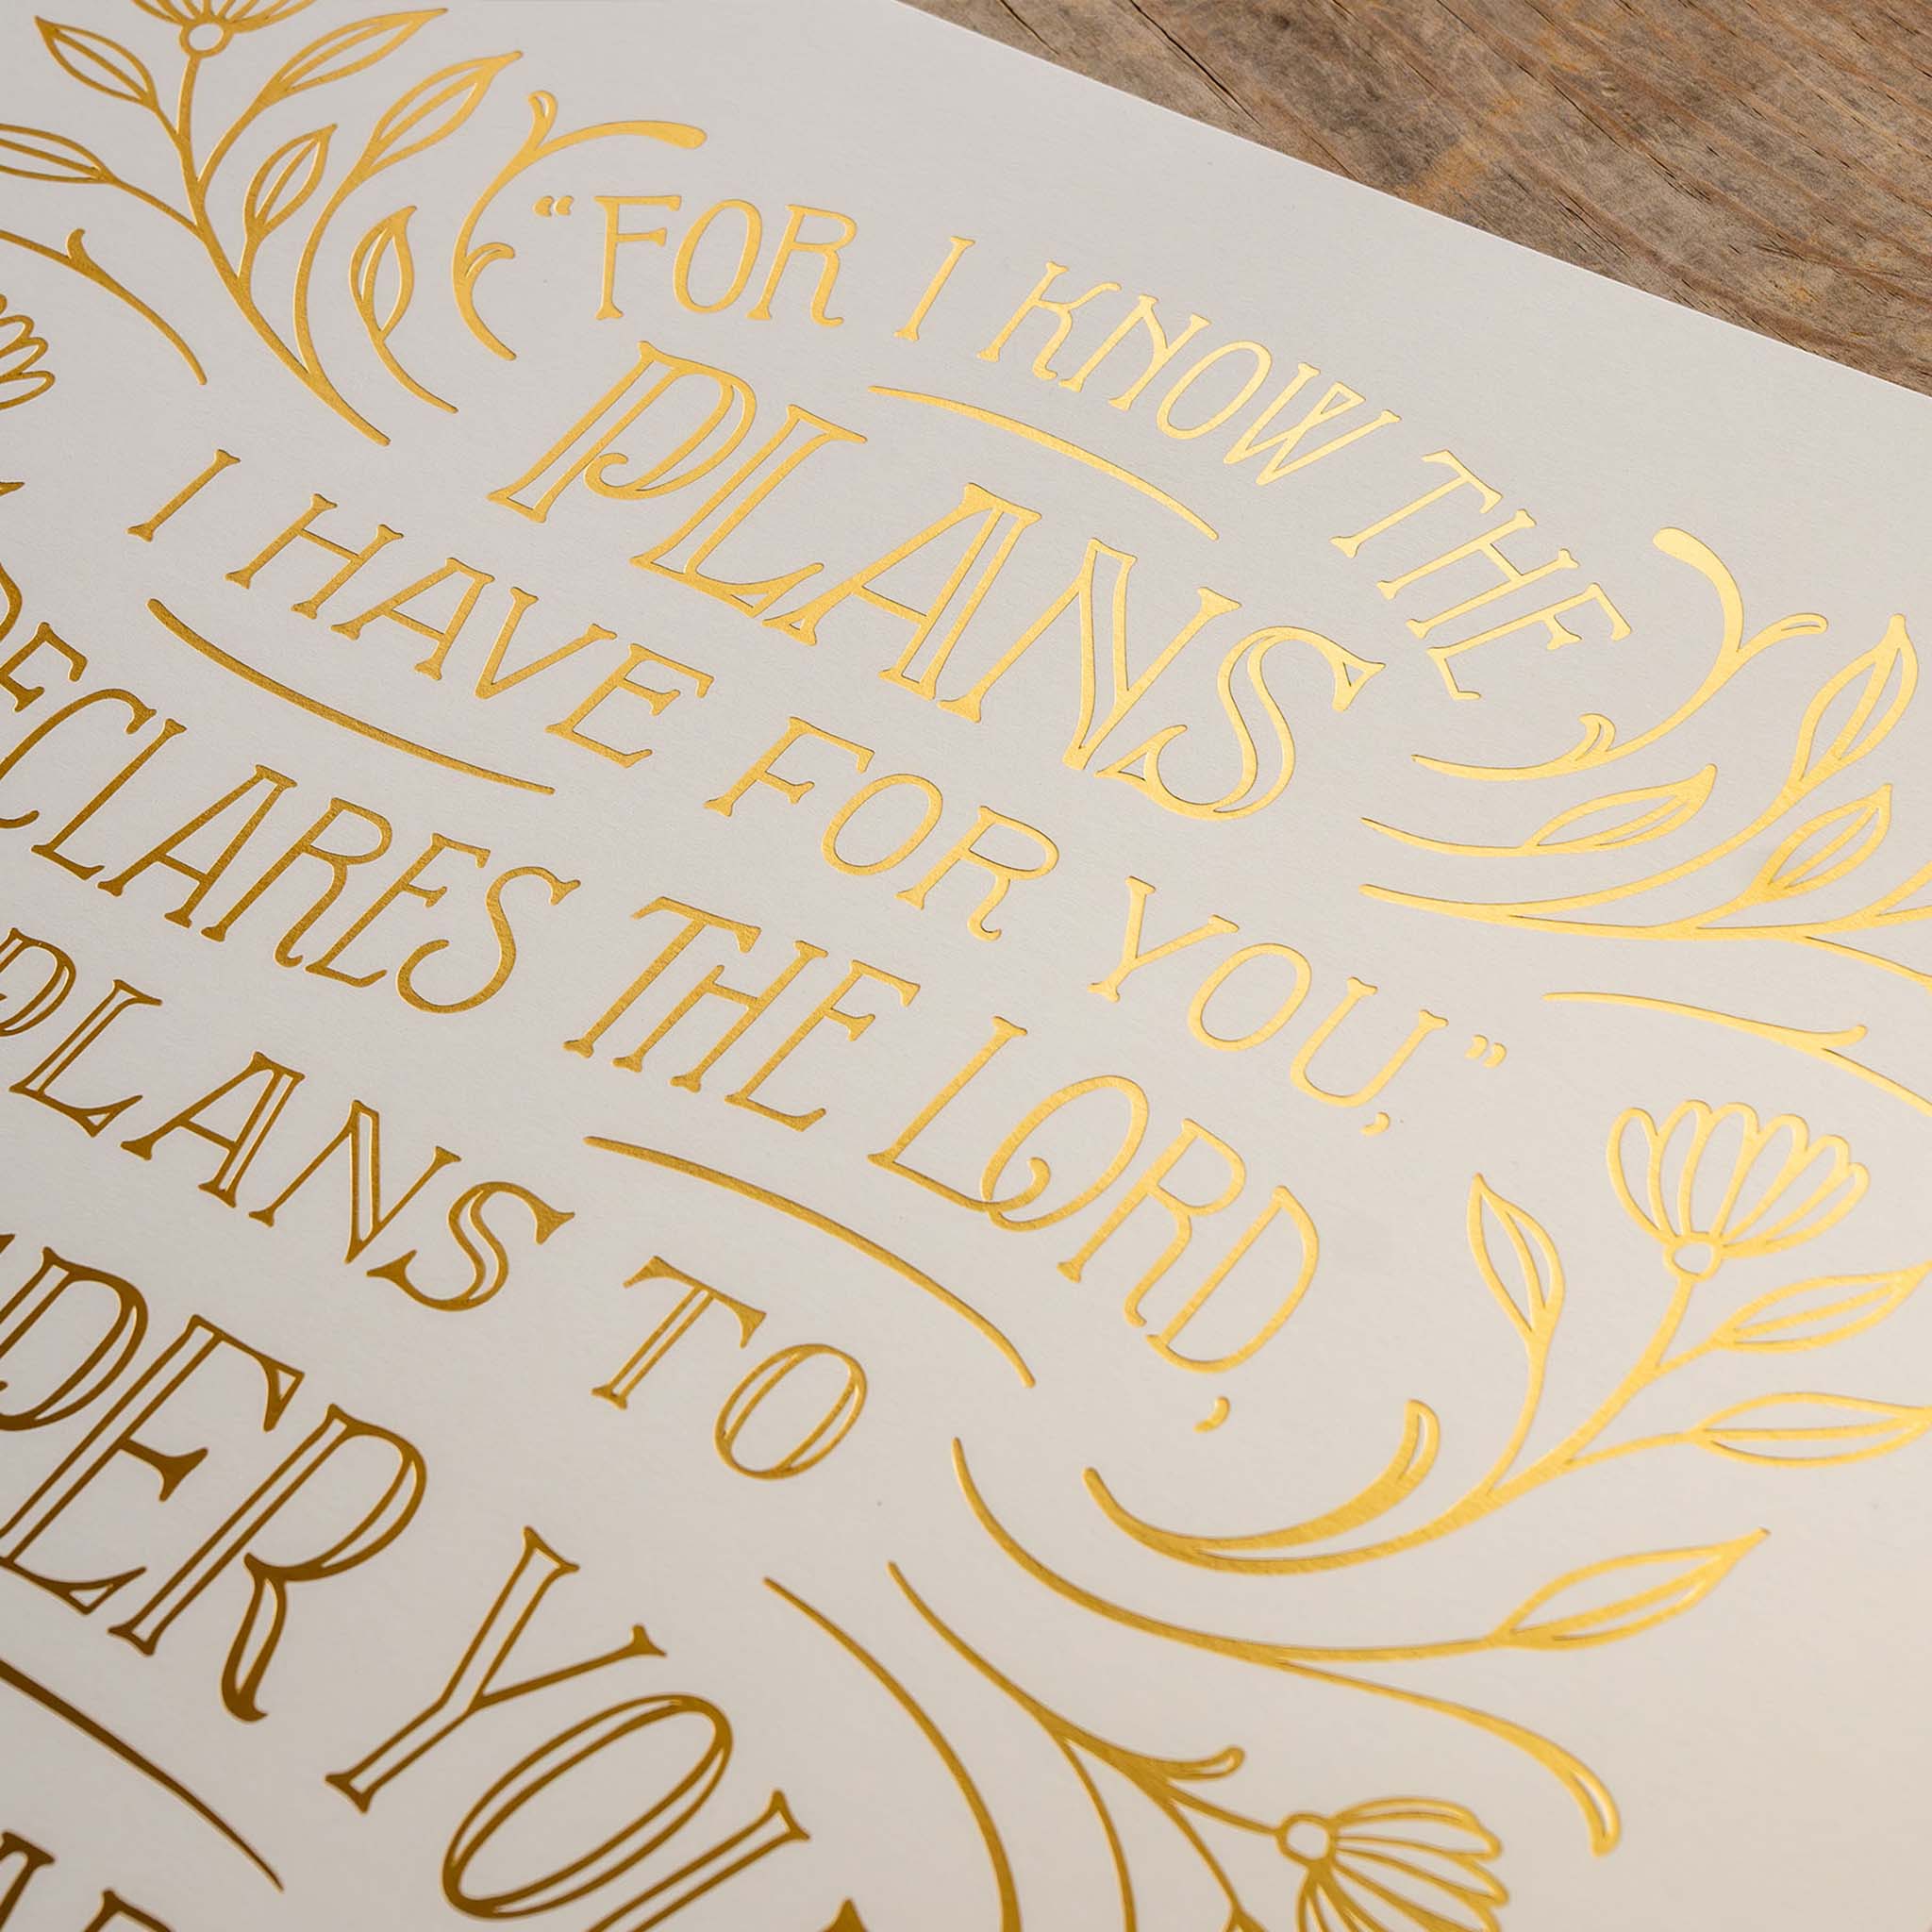 “FOR I KNOW THE
PLANS
I HAVE FOR YOU,”
DECLARES THE LORD,
PLANS TO
YOU